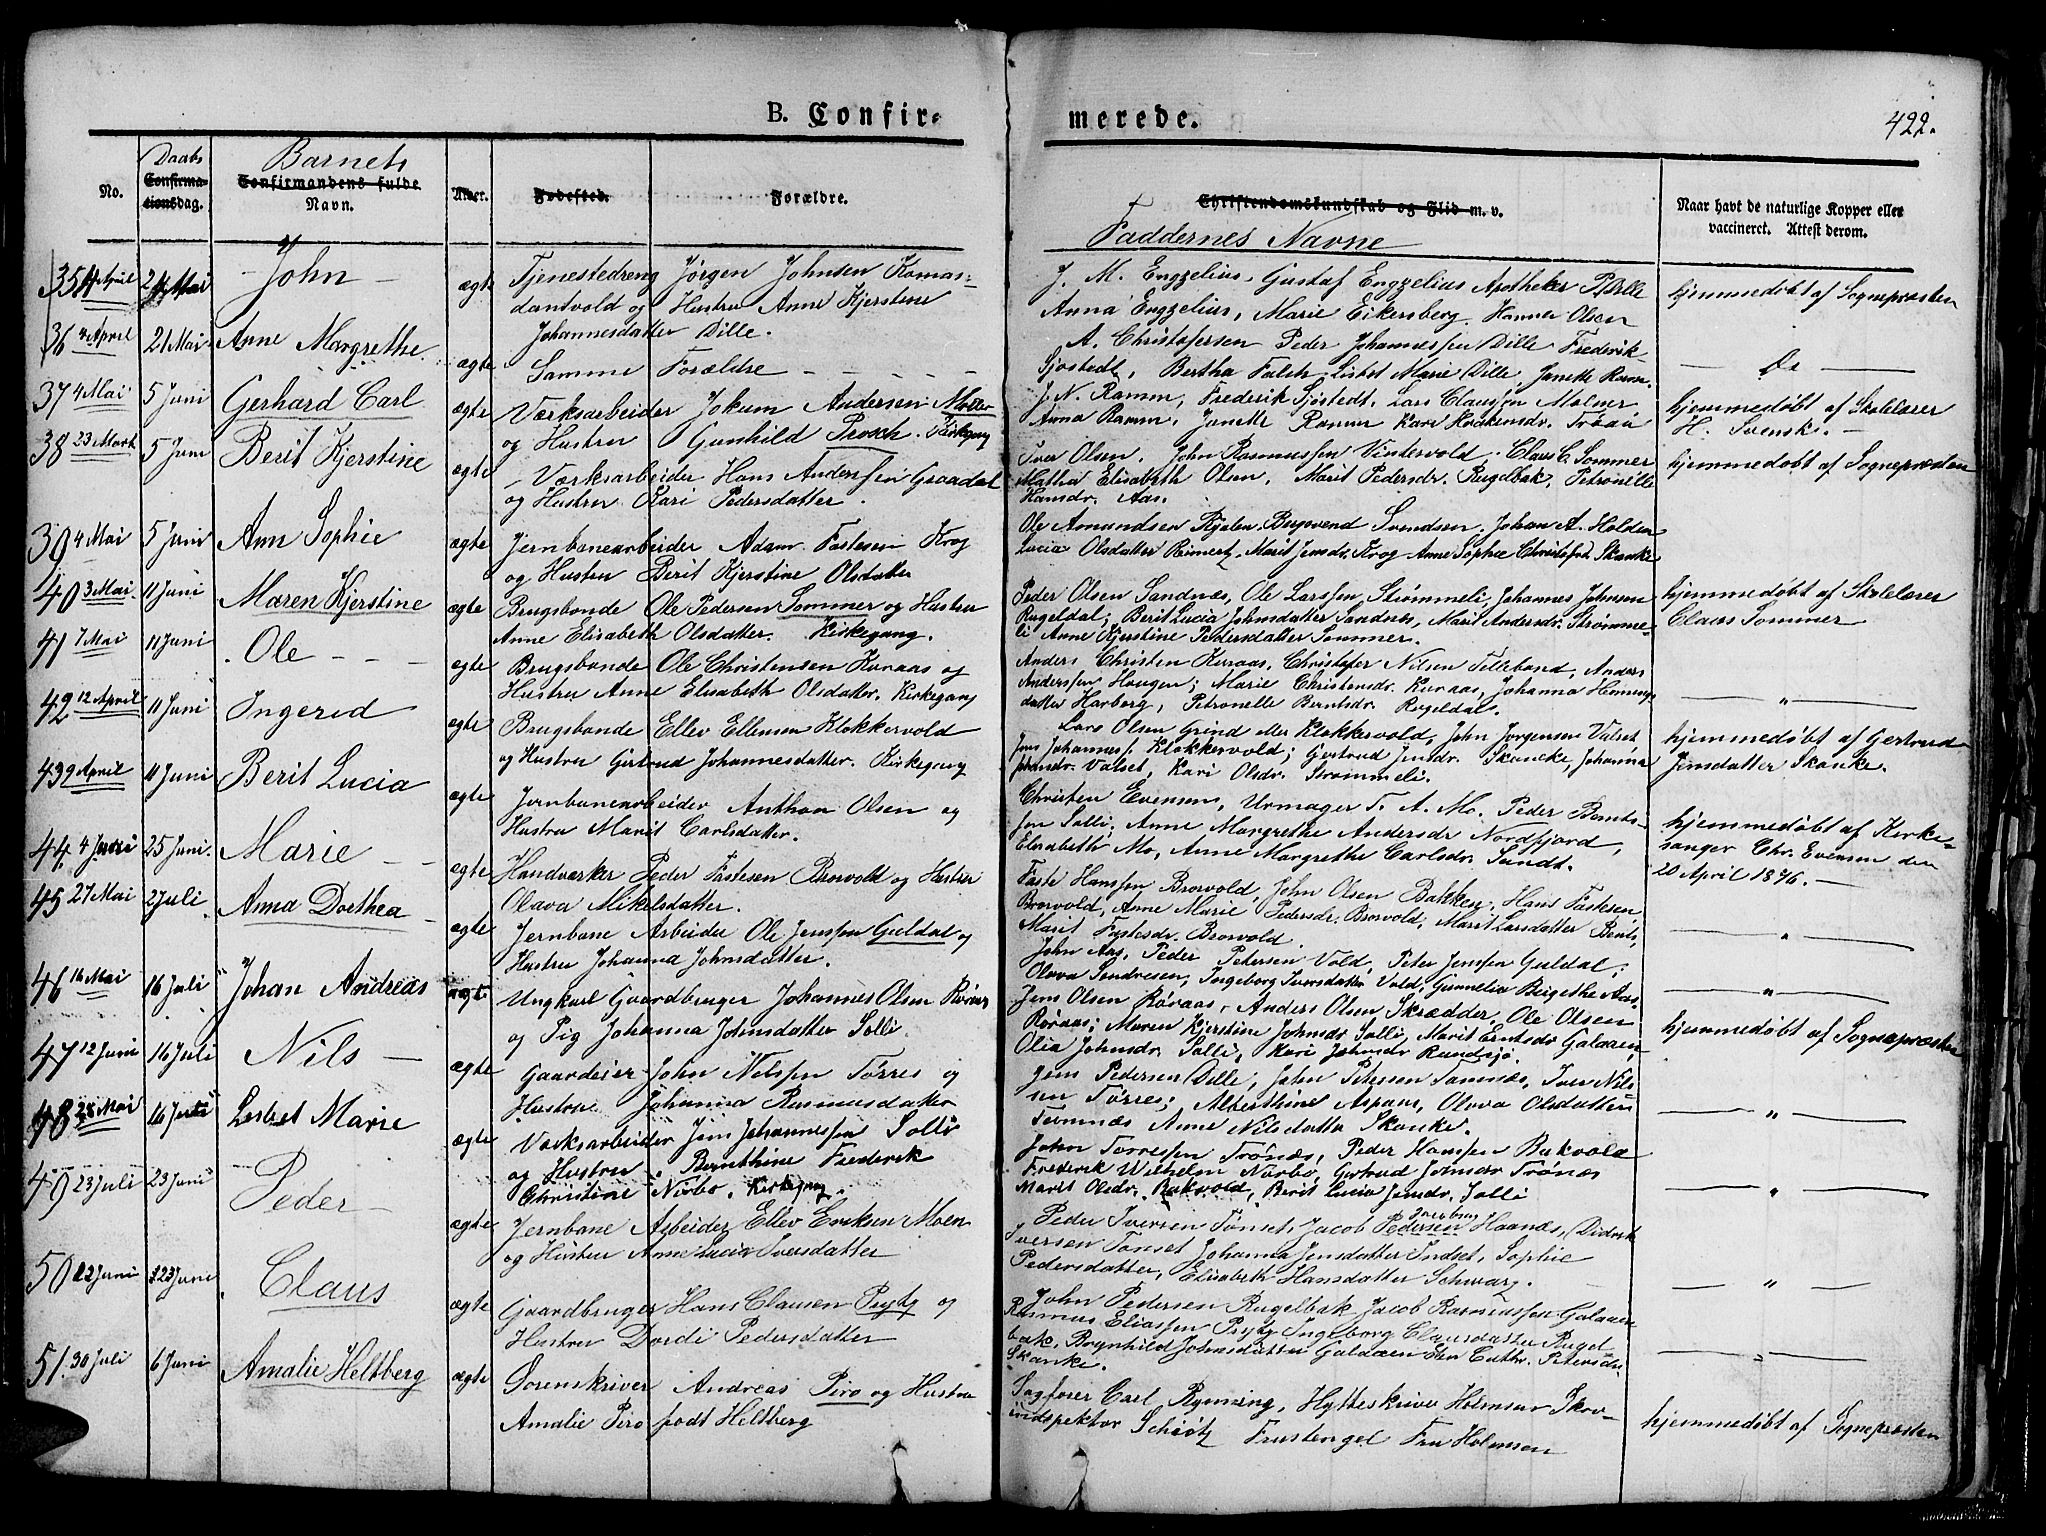 B. Confir-
merede.
422.
No.
Daabs
Confirma-
tionsdag.
Barnets
Confirmandens fulde
Navn.
Alder.
Fødested.
Forældre.
Christendomskundskab og Flid m. v.
Faddernes Navne
Naar havt de naturlige Kopper eller
vaccineret. Attest derom.
35 4 April 21 Mai John ægte Tjenestedreng Jørgen Johnsen
dantvold og Hustru Anne Kjerstine
Johannesdatter Dille.
J. M. Engzelius, Gustaf Engzelius Apotheker Dille
Anna Engzelius, Marie Eikersberg. Hanna Olsen
hjemmedøbt af Sognepræsten
36 4 April 21 Mai Anne Margrethe ægte Samme Forældre
A. Christofersen Peder Johannessen Dille Frederik
Sjøstedt, Bertha Falch Lisbet Marie Dille, Janette Ramm.
Do
37 4 Mai 5 Juni Gerhard Carl ægte Værksarbeider Jokum Andersen Møller
og Hustru Gunhild Prosch. Kirkegang
J. N. Ramm, Frederik Sjøstedt, Lars Claussen Malmer
Anna Ramm, Janette Ramm Kari
hjemmedøbt af Skolelærer
H. Svensk.
38 23 Marts 5 Juni Berit Kjerstine ægte Værksarbeider Hans Anderssen Graadal
og Hustru Kari Pedersdatter.
Iver Olsen. John Rasmussen Vintervold. Claus C. Sommer
Elisabeth Olsen, Marit Pedersdr. Rugelbak, Petronelle
Hansdr. Aas.
hjemmedøbt af Sognepræsten
39 4 Mai 5 Juni Ann Sophie ægte Jernbanearbeider Adam Fastesen Krog
og Hustru Berit Kjerstine Olsdatter
Ole Amundsen Svendsen. Johan A. Holden
Lucia Olsdatter Marit Jensdr. Krog Anne Sophie Skanke
40 3 Mai 11 Juni Maren Kjerstine ægte Brugsbonde Ole Pedersen Sommer og Hustru
Anne Elisabeth Olsdatter. Kirkegang.
Peder Olsen Sandnæs, Ole Larssen Strømmeli, Johannes Johnsen
Rugeldal; Berit Lucia Johnsdatter Sandnes, Marit Andersdr. Strømme-
li Anne Kjerstine Pedersdatter Sommer.
hjemmedøbt af Skolelærer
Claus Sommer
41 7 Mai 11 Juni Ole ægte Brugsbonde Ole Christensen Kuraas og
Hustru Anne Elisabeth Olsdatter. Kirkegang
Anders Christen Kuraas, Christofer Nilsen Anders
Anderssen Haugen; Marie Christensdr. Kuraas, Johanna Henning-
datter Harborg, Petronelle Berntsdr. Rugeldal.
"
42 12 April 11 Juni Ingerid ægte Brugsbonde Ellev Ellevsen Klokkervold
og Hustru Gjertrud Johannesdatter. Kirkegang
Lars Olsen Grind eller Klokkervold, John Jørgensen Valset
Jens Johanness. Klokkervold; Gertrud Jensdr. Skancke, Johanna
Johansdr. Valset, Kari Olsdr. Strømmeli.
hjemmedøbt af Gertrud
Jensdatter Skanke.
43 9 April 11 Juni Berit Lucia ægte Jernbanearbeider Anthon Olsen og
Hustru Marit Carlsdatter.
Christen Evensen, Urmager T. A. Mo. Peder Bernts-
sen Solli, Anne Margrethe Andersdr Nordfjord,
Elisabeth Mo, Anne Margrethe Carlsdr. Sundt.
hjemmedøbt af Kirke-
sanger Chr. Evensen den
20 April 1876.
44 4 Juni 25 Juni Marie ægte Handværker Peder Fastesen Brovold og Hustru
Olava Mikelsdatter.
Faste Hanssen Brovold, John Olsen Bakken, Hans Fastesen
Brovold, Anne Marie Pedersdr. Brovold, Marit Larsdatter
Marit Fastesdr. Brovold.
"
45 27 Mai 2 Juli Anna Dorthea ægte Jernbane Arbeider Ole Jenssen Guldal og
Hustru Johanna Johnsdatter.
John Aas, Peder Petersen Vold, Peter Jenssen Guldal,
Olava Sendresen, Ingeborg Iversdatter Vold, Gunnelia Birgethe Aas.
"
46 14 Mai 16 Juli Johan Andreas uægte Ungkarl Gaardbruger Johannes Olsen Røraas
og Pig Johanna Johnsdatter Solli.
Jens Olsen Røraas, Anders Olsen Skrædder, Ole Olsen
Røraas; Maren Kjerstine Johnsdr. Solli, Marit Erntsdr Galaaen,
Olia Johnsdr. Solli, Kari Johnsdr Rundsjø.
hjemmedøbt af Sognepræsten
47 12 Juni 16 Juli Nils ægte Gaardeier John Nilssen Tørres og
Hustru Johanna Rasmusdatter
Jens Pedersen Dille, John Petersen Tamnæs, Iver Nils-
sen Tørres; Alberthine Aspaas, Olava Olsdatter
Tamnæs Anne Nilsdatter Skanke.
"
48 28 Mai 16 Juli Lisbet Marie ægte Værksarbeider Jens Johannessen Solli
og Hustru Bernthine Frederik
Christine Nirbo. Kirkegang.
John Torressen Trønæs, Peder Hanssen Bukvold
Frederik Wilhelm Nirbo, Gertrud Johnsdr Trønæs
Marit Olsdr. Bukvold, Berit Lucia Jensdr. Solli
"
49 23 Juli 23 Juni Peder ægte Jernbane Arbeider Ellev Eriksen Moen
og Hustru Anne Lucia Iversdatter
Peder Iversen Tønset, Jacob Pedersen Haanæs, Didrik
Iversen Tønset Johanna Jensdatter Indset, Sophie
Pedersdatter, Elisabeth Hansdatter Schwarz.
"
50 12 Juni 23 Juni Claus ægte Gaardbruger Hans Clausen Prytz og
Hustru Dordi Pedersdatter
John Pedersen Rugelbak Jacob Rasmussen Galaaen
Rasmus Eliassen Prytz Ingeborg Clausdatter Rugel-
bak, Ragnhild Johnsdatter Galaaen Petersdr.
Skanke.
"
51. 30 Juli 6 Juni Amalie Heltberg ægte Sorenskriver Andreas Piro og Hustru
Amalie Piro født Heltberg
Sagfører Carl Rynning, Hytteskriver Holmsen Skov-
indspektør Schiøtz Fru Holmsen
hjemmedøbt af Sognepræsten